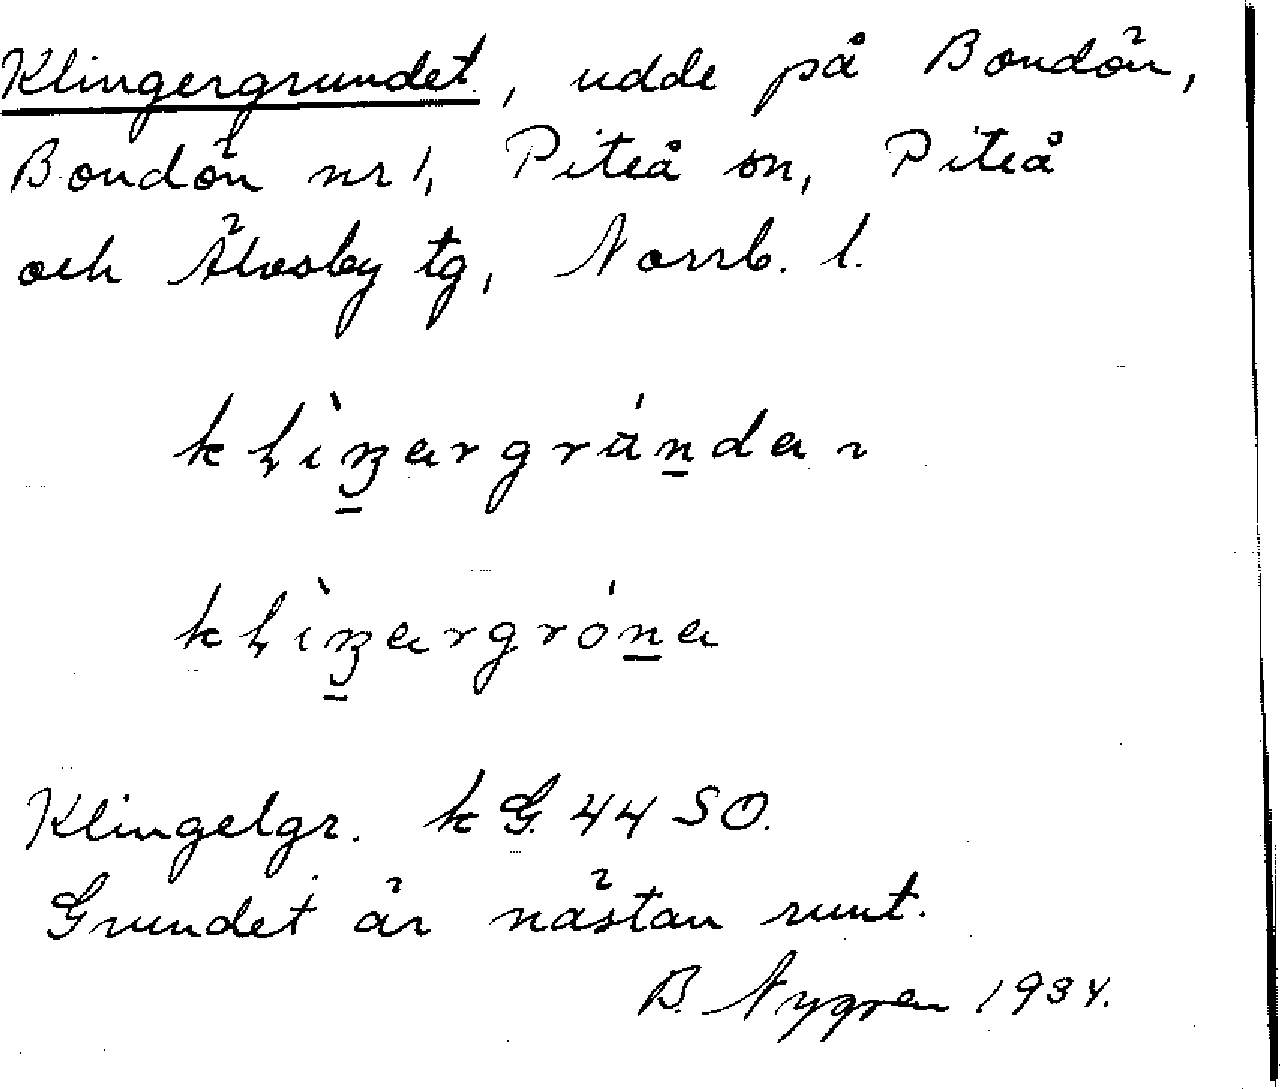 Klingergrundet, udde på Bondön,
Bondön nr 1, Piteå sn, Piteå
och Älvsby tg, Norrb. l.
Klingelgr. kG. 44 SO.
Grundet är nästan runt.
B. Nygren 1934.